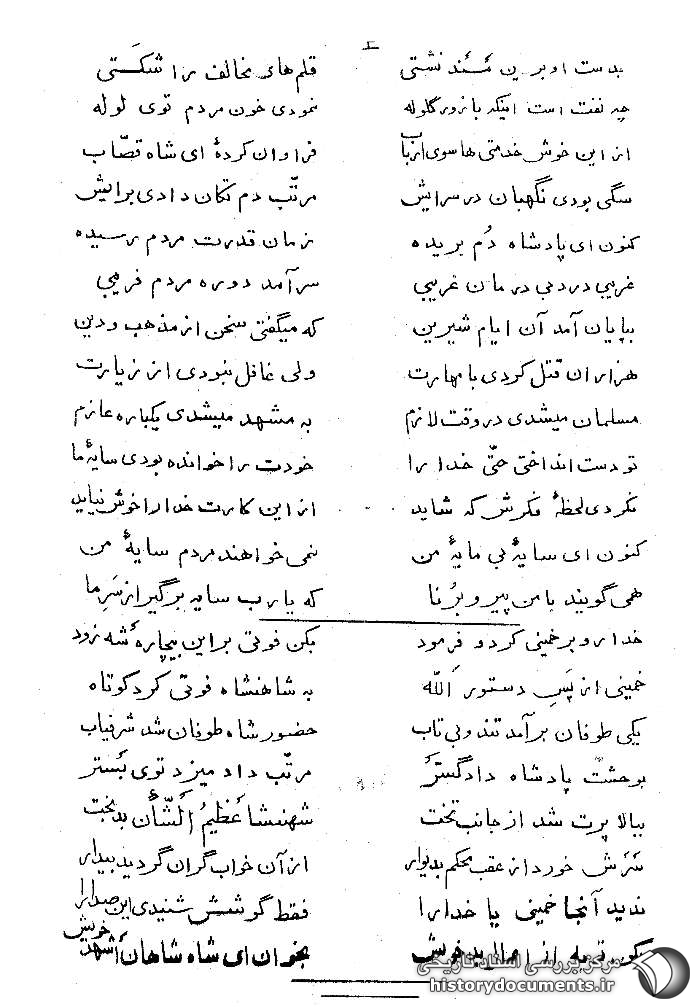 بدست او برین مَسَند نشتی قلم‌های مخالف را شکَستی
چه نفت است اینکه با زور گلوله نمودی خون مردم توی لوله
از این خوش خدمتی ها سوی ارباب فراوان کردهٔ ای شاه قصّاب
سگی بودی نگهبان در سرایش مرتّب دم تکان دادی برایش
کنون ای پادشاه دُم بریده زمان قدرت مردم رسیده
غریبی دردمی درمان غریبی سرآمد دوره مردم فریبی
بپایان آمد آن ایام شیرین که میگفتی سخن از مذهب و دین
هزاران قتل کردی با مهارت ولی غافل نبودی از زیارت
مسلمان میشدی در وقت لازم به مشهد میشدی یکباره عازم
تو دست انداختی حتّی خدا را خودت را خوانده بودی سایهٔ ما
نکردی لحظهٔ فکرش که شاید از این کارت خدا را خوش نیاید
کنون ای سایهٔ بی مایهٔ من نمی خواهند مردم سایهٔ من
همی گویند با من پیر و بُرنا که یا رب سایه برگیر از سَرِ ما
خدا رو بر خمینی کرد و فرمود بکن فوتی بر این بیچارهٔ شه زود
خمینی از پَسِ دستور اَللّه به شاهنشاه فوتی کرد کوتاه
یکی طوفان برآمد تند و بی تاب حضور شاه طوفان شد شرفیاب
بوحشت پادشاه دادگستَر مرتّب داد میزد توی بَستر
ببالا پرت شد از جانب تخت شهنشا عَظیمُ اَلشَّأن بدبخت
سَرَش خورد از عقب محکم بدیوار از آن خواب گران گردید بیدار
ندید آنجا خمینی یا خدا را فقط گوشش شنیدی این صدا را
بخوان ای شاه شاهان اَشهد خویش
مرکز بررسی اسناد تاریخی
historydocuments.ir